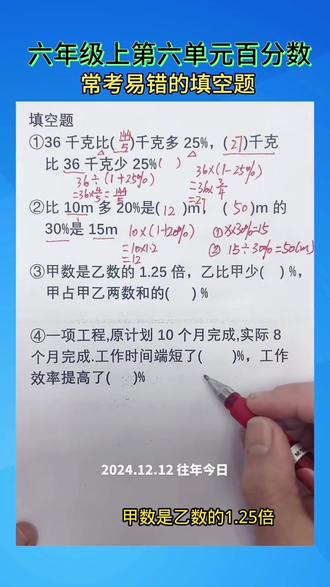 六年级上第六单元百分数
常考易错的填空题
填空题
①36 千克比(144/5)千克多 25%，(27)千克
比 36 千克少 25%( )
36÷(1+25%)
=36×4/5=144/5
36×(1-25%)
=36×3/4
=27
②比 10m 多 20%是(12)m，(50)m 的
30%是 15m
10×(1+20%)
=10×1.2
=12
①x×30%=15
②15÷30%=50(m)
③甲数是乙数的 1.25 倍，乙比甲少( )%，
甲占甲乙两数和的( )%
④一项工程,原计划 10 个月完成,实际 8
个月完成.工作时间端短了( )%，工作
效率提高了( )%
2024.12.12 往年今日
甲数是乙数的1.25倍